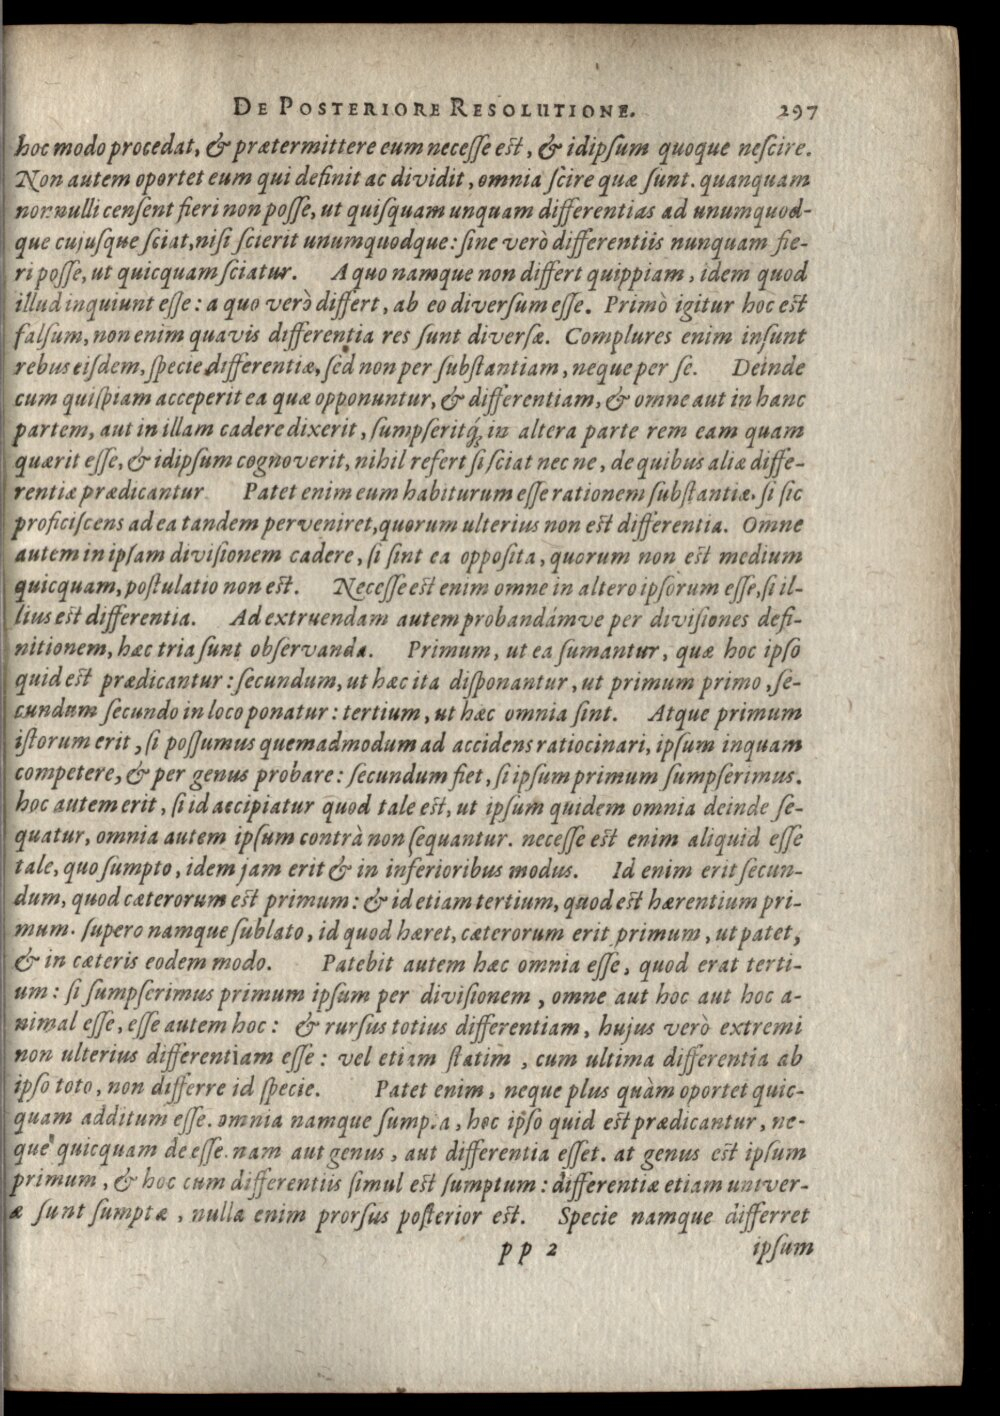 DE POSTERIORE RESOLUTIONE. 297
hoc modo procedat, & prætermittere eum necesse est, & idipsum quoque nescire.
Non autem oportet eum qui definit ac dividit, omnia scire quæ sunt. quanquam
nonnulli censent fieri non posse, ut quisquam unquam differentias ad unumquod-
que cujusque sciat, nisi scierit unumquodque: sine verò differentiis nunquam fie-
ri posse, ut quicquam sciatur. A quo namque non differt quippiam, idem quod
illud inquiunt esse: a quo verò differt, ab eo diversum esse. Primò igitur hoc est
falsum, non enim quavis differentia res sunt diversæ. Complures enim insunt
rebus eisdem, specie differentiæ, sed non per substantiam, neque per se. Deinde
cum quispiam acceperit ea quæ opponuntur, & differentiam, & omne aut in hanc
partem, aut in illam cadere dixerit, sumpseritq́; in altera parte rem eam quam
quærit esse, & idipsum cognoverit, nihil refert si sciat nec ne, de quibus aliæ diffe-
rentiæ prædicantur Patet enim eum habiturum esse rationem substantiæ. si sic
proficiscens ad ea tandem perveniret, quorum ulterius non est differentia. Omne
autem in ipsam divisionem cadere, si sint ea opposita, quorum non est medium
quicquam, postulatio non est. Necesse est enim omne in altero ipsorum esse, si il-
lius est differentia. Ad extruendam autem probandámve per divisiones defi-
nitionem, hæc tria sunt observanda. Primum, ut ea sumantur, quæ hoc ipso
quid est prædicantur: secundum, ut hæc ita disponantur, ut primum primo, se-
cundum secundo in loco ponatur: tertium, ut hæc omnia sint. Atque primum
istorum erit, si possumus quemadmodum ad accidens ratiocinari, ipsum inquam
competere, & per genus probare: secundum fiet, si ipsum primum sumpserimus.
hoc autem erit, si id accipiatur quod tale est, ut ipsum quidem omnia deinde se-
quatur, omnia autem ipsum contrà non sequantur. necesse est enim aliquid esse
tale, quo sumpto, idem jam erit & in inferioribus modus. Id enim erit secun-
dum, quod cæterorum est primum: & id etiam tertium, quod est hærentium pri-
mum. supero namque sublato, id quod hæret, cæterorum erit primum, ut patet,
& in cæteris eodem modo. Patebit autem hæc omnia esse, quod erat terti-
um: si sumpserimus primum ipsum per divisionem, omne aut hoc aut hoc a-
nimal esse, esse autem hoc: & rursus totius differentiam, hujus verò extremi
non ulterius differentiam esse: vel etiam statim, cum ultima differentia ab
ipso toto, non differre id specie. Patet enim, neque plus quàm oportet quic-
quam additum esse. omnia namque sumpta, hoc ipso quid est prædicantur, ne-
que quicquam deesse. nam aut genus, aut differentia esset. at genus est ipsum
primum, & hoc cum differentiis simul est sumptum: differentiæ etiam univer-
æ sunt sumptæ, nulla enim prorsus posterior est. Specie namque differret
pp 2 ipsum